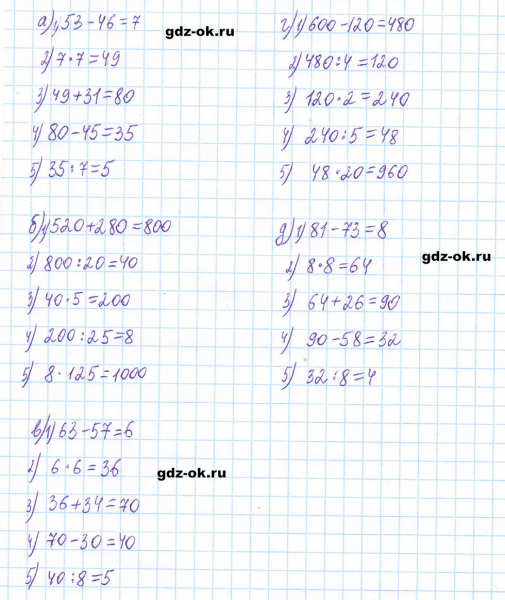 а) 1) 53-46=7
2) 7·7=49
3) 49+31=80
4) 80-45=35
5) 35:7=5
б) 1) 520+280=800
2) 800:20=40
3) 40·5=200
4) 200:25=8
5) 8·125=1000
в) 1) 63-57=6
2) 6·6=36
3) 36+34=70
4) 70-30=40
5) 40:8=5
г) 1) 600-120=480
2) 480:4=120
3) 120·2=240
4) 240:5=48
5) 48·20=960
д) 1) 81-73=8
2) 8·8=64
3) 64+26=90
4) 90-58=32
5) 32:8=4
gdz-ok.ru
gdz-ok.ru
gdz-ok.ru